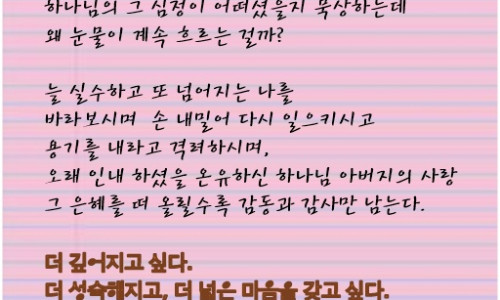 하나님의 그 심정이 어떠셨을지 묵상하는데
왜 눈물이 계속 흐르는 걸까?
늘 실수하고 또 넘어지는 나를
바라보시며 손 내밀어 다시 일으키시고
용기를 내라고 격려하시며,
오래 인내 하셨을 온유하신 하나님 아버지의 사랑
그 은혜를 떠 올릴수록 감동과 감사만 남는다.
더 깊어지고 싶다.
더 성숙해지고, 더 넓은 마음을 갖고 싶다.